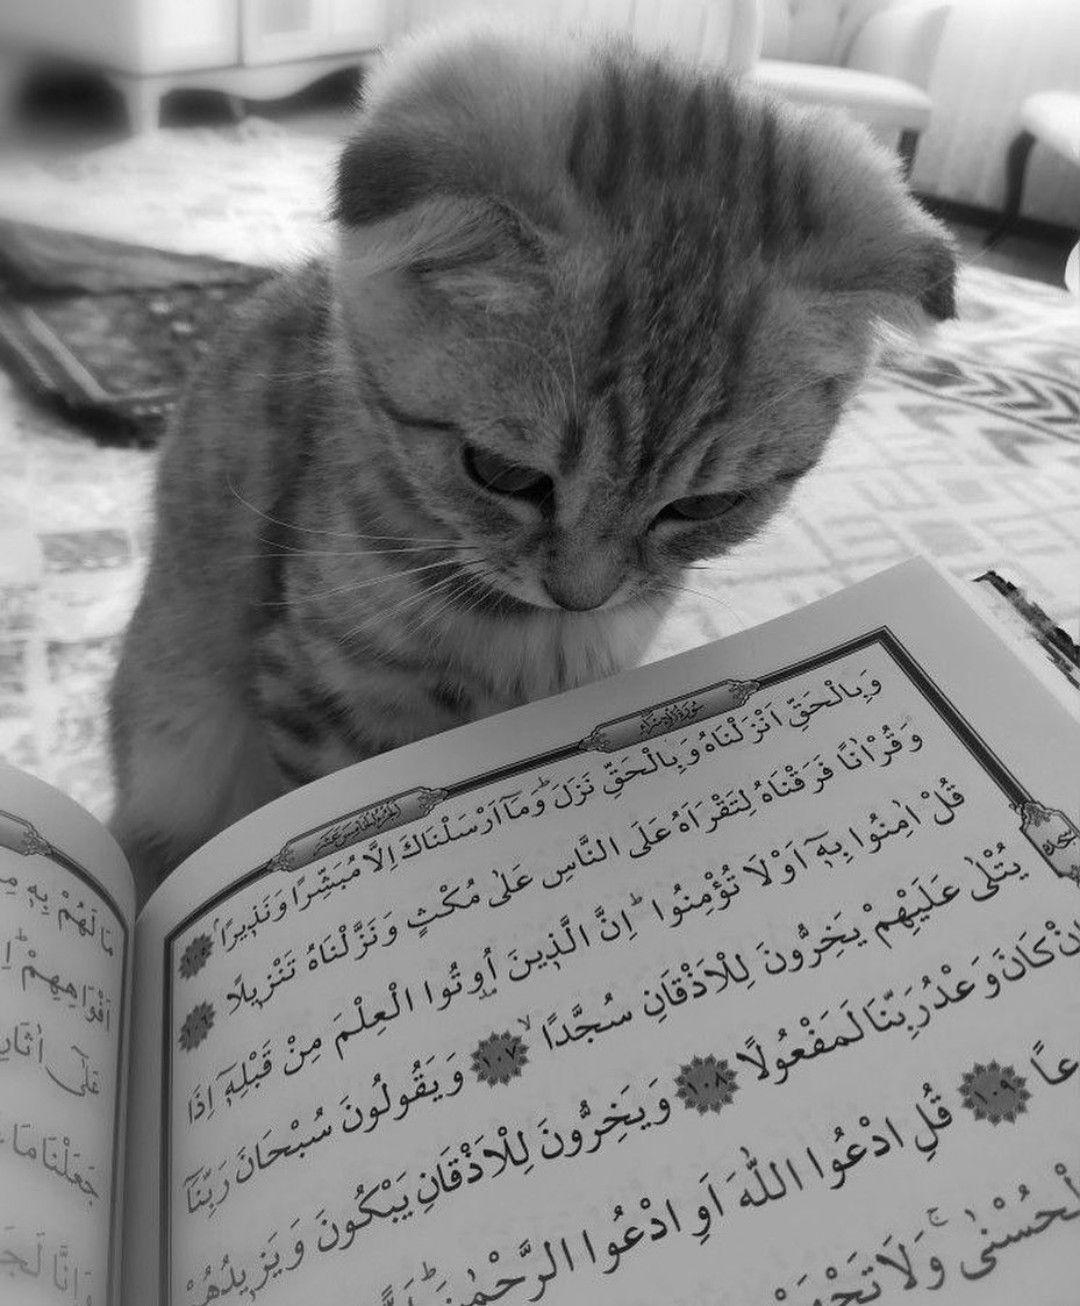 سُورَةُ الْاِسْرَاءِ
اَلْجُزْءُ الْخَامِسَ عَشَرَ
وَبِالْحَقِّ اَنْزَلْنَاهُ وَبِالْحَقِّ نَزَلَۜ وَمَٓا اَرْسَلْنَاكَ اِلَّا مُبَشِّرًا وَنَذٖيرًاۢ ١٠٥
وَقُرْاٰنًا فَرَقْنَاهُ لِتَقْرَاَهُ عَلَى النَّاسِ عَلٰى مُكْثٍ وَنَزَّلْنَاهُ تَنْزٖيلًا ١٠٦
قُلْ اٰمِنُوا بِهٖٓ اَوْ لَا تُؤْمِنُواۜ اِنَّ الَّذٖينَ اُو۫تُوا الْعِلْمَ مِنْ قَبْلِهٖٓ اِذَا
يُتْلٰى عَلَيْهِمْ يَخِرُّونَ لِلْاَذْقَانِ سُجَّدًاۙ ١٠٧ وَيَقُولُونَ سُبْحَانَ رَبِّنَٓا
اِنْ كَانَ وَعْدُ رَبِّنَا لَمَفْعُولًا ١٠٨ وَيَخِرُّونَ لِلْاَذْقَانِ يَبْكُونَ وَيَزٖيدُهُمْ
عًا ١٠٩ قُلِ ادْعُوا اللّٰهَ اَوِ ادْعُوا الرَّحْمٰنَۜ
لْحُسْنٰىۚ وَلَا تَجْهَرْ
مَا لَهُمْ بِهٖ
اَفْوَاهِهِمْۜ
عَلٰٓى اٰثَارِ
جَعَلْنَا مَا
وَاِنَّا لَجَا